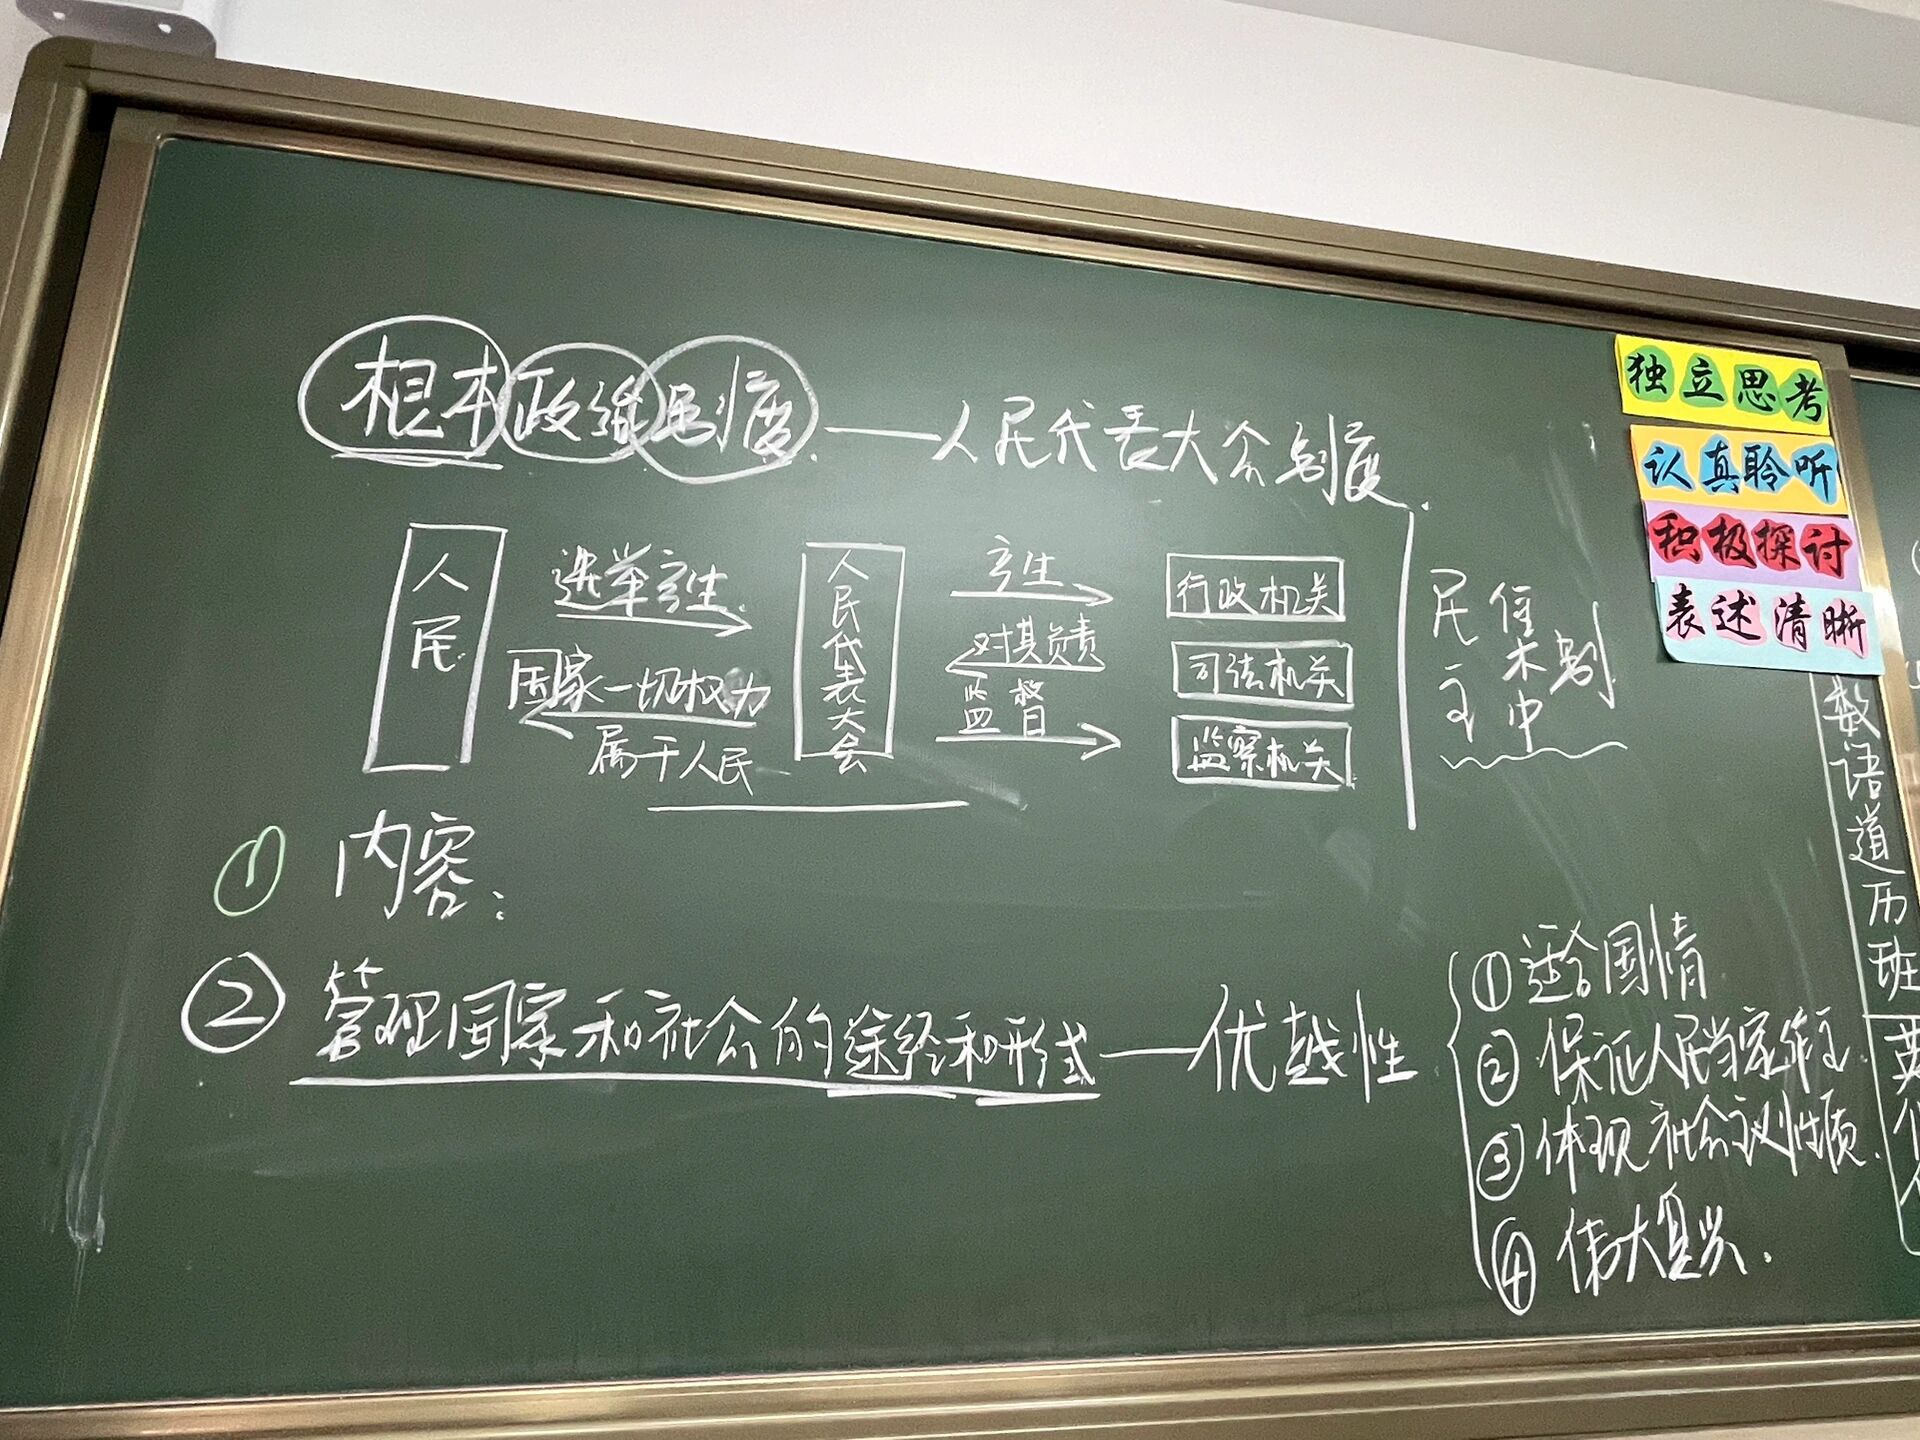 根本政治制度——人民代表大会制度.
人民
选举产生
国家一切权力
属于人民
人民代表大会
产生
对其负责
监督
行政机关
司法机关
监察机关
民主
集中制
① 内容:
② 管理国家和社会的途经和形式——优越性
① 适合国情
② 保证人民当家作主.
③ 体现社会主义性质.
④ 伟大复兴.
独立思考
认真聆听
积极探讨
表述清晰
数语道历班
英